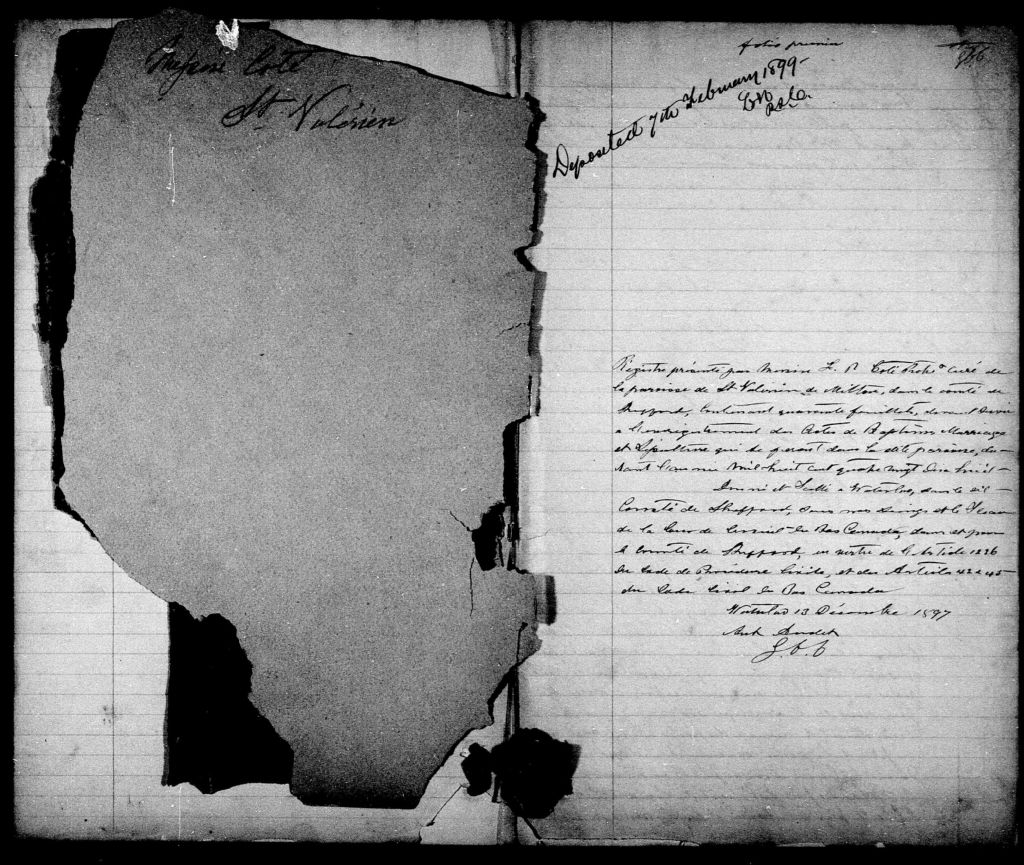 Messire Coté
St. Valérien
folio premier
866
Deposited 7th February 1899-
Registre présenté par Messire L. P. Coté Ptre curé de
la paroisse de St Valérien de Milton, dans le comté de
Shefford, Contenant quarante feuillets, devant servir
a l'enregistrement des Actes de Baptêmes Marriages
et Sépulture qui se feront dans la dite paroisse, du-
rant l'année Mil huit cent quatre vingt dix huit-
Donné et Scellé a Waterloo, dans le dit
Comté de Shefford, sous nos seings et le Sceau
de la Cour de Circuit du Bas Canada, dans et pour
le comté de Shefford, en vertu de l'Article 1236
du Code de Procédure Civile, et des Articles 42 a 45
du Code Civil du Bas Canada
Waterloo 13 Décembre 1897
G. C. C